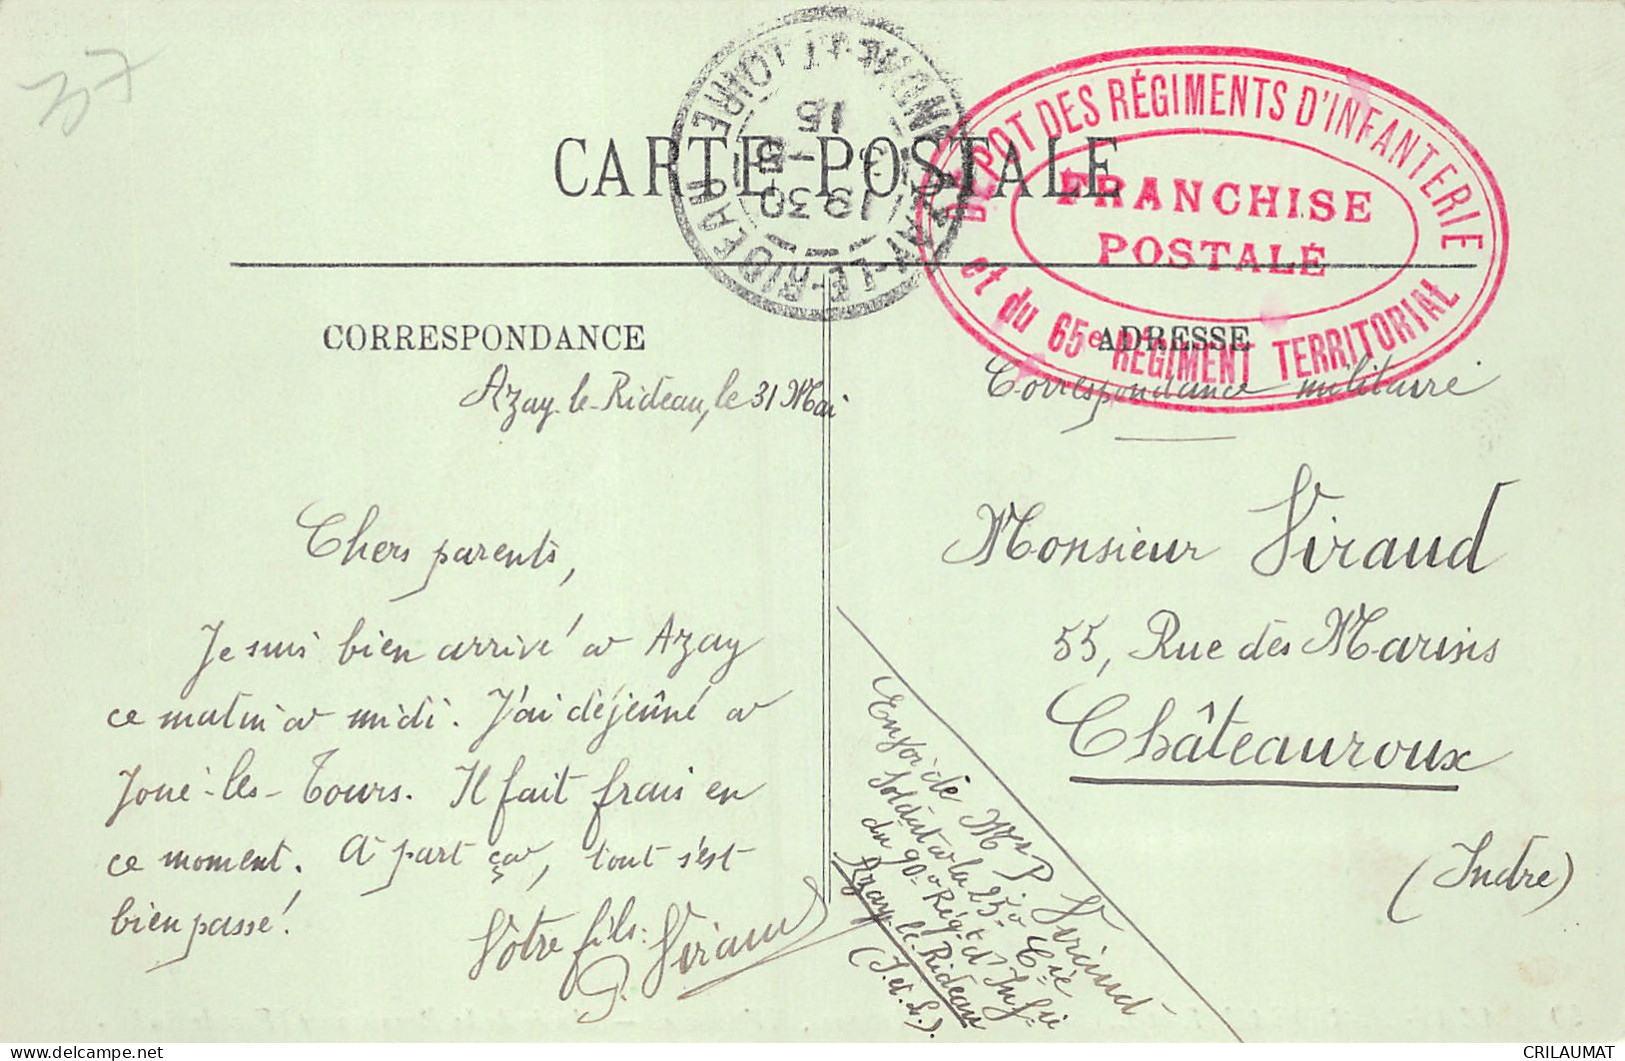 37
CARTE POSTALE
AZAY-LE-RIDEAU
INDRE-ET-LOIRE
19 30
3 - 5
15
DÉPOT DES RÉGIMENTS D'INFANTERIE
FRANCHISE
POSTALE
et du 65e RÉGIMENT TERRITORIAL
CORRESPONDANCE
Azay-le-Rideau, le 31 Mai
Chers parents,
Je suis bien arrivé à Azay
ce matin à midi. J'ai déjeûné à
Joué-les-Tours. Il fait frais en
ce moment. A part ça, tout s'est
bien passé!
Vôtre fils:
P. Viraud
ADRESSE
Correspondance militaire
Monsieur Viraud
55, Rue des Marins
Châteauroux
(Indre)
Envoi de Mr P. Viraud
Soldat à la 25e Cie
du 90e Régt d'Infie
Azay-le-Rideau
(I. et L.).
CRILAUMAT